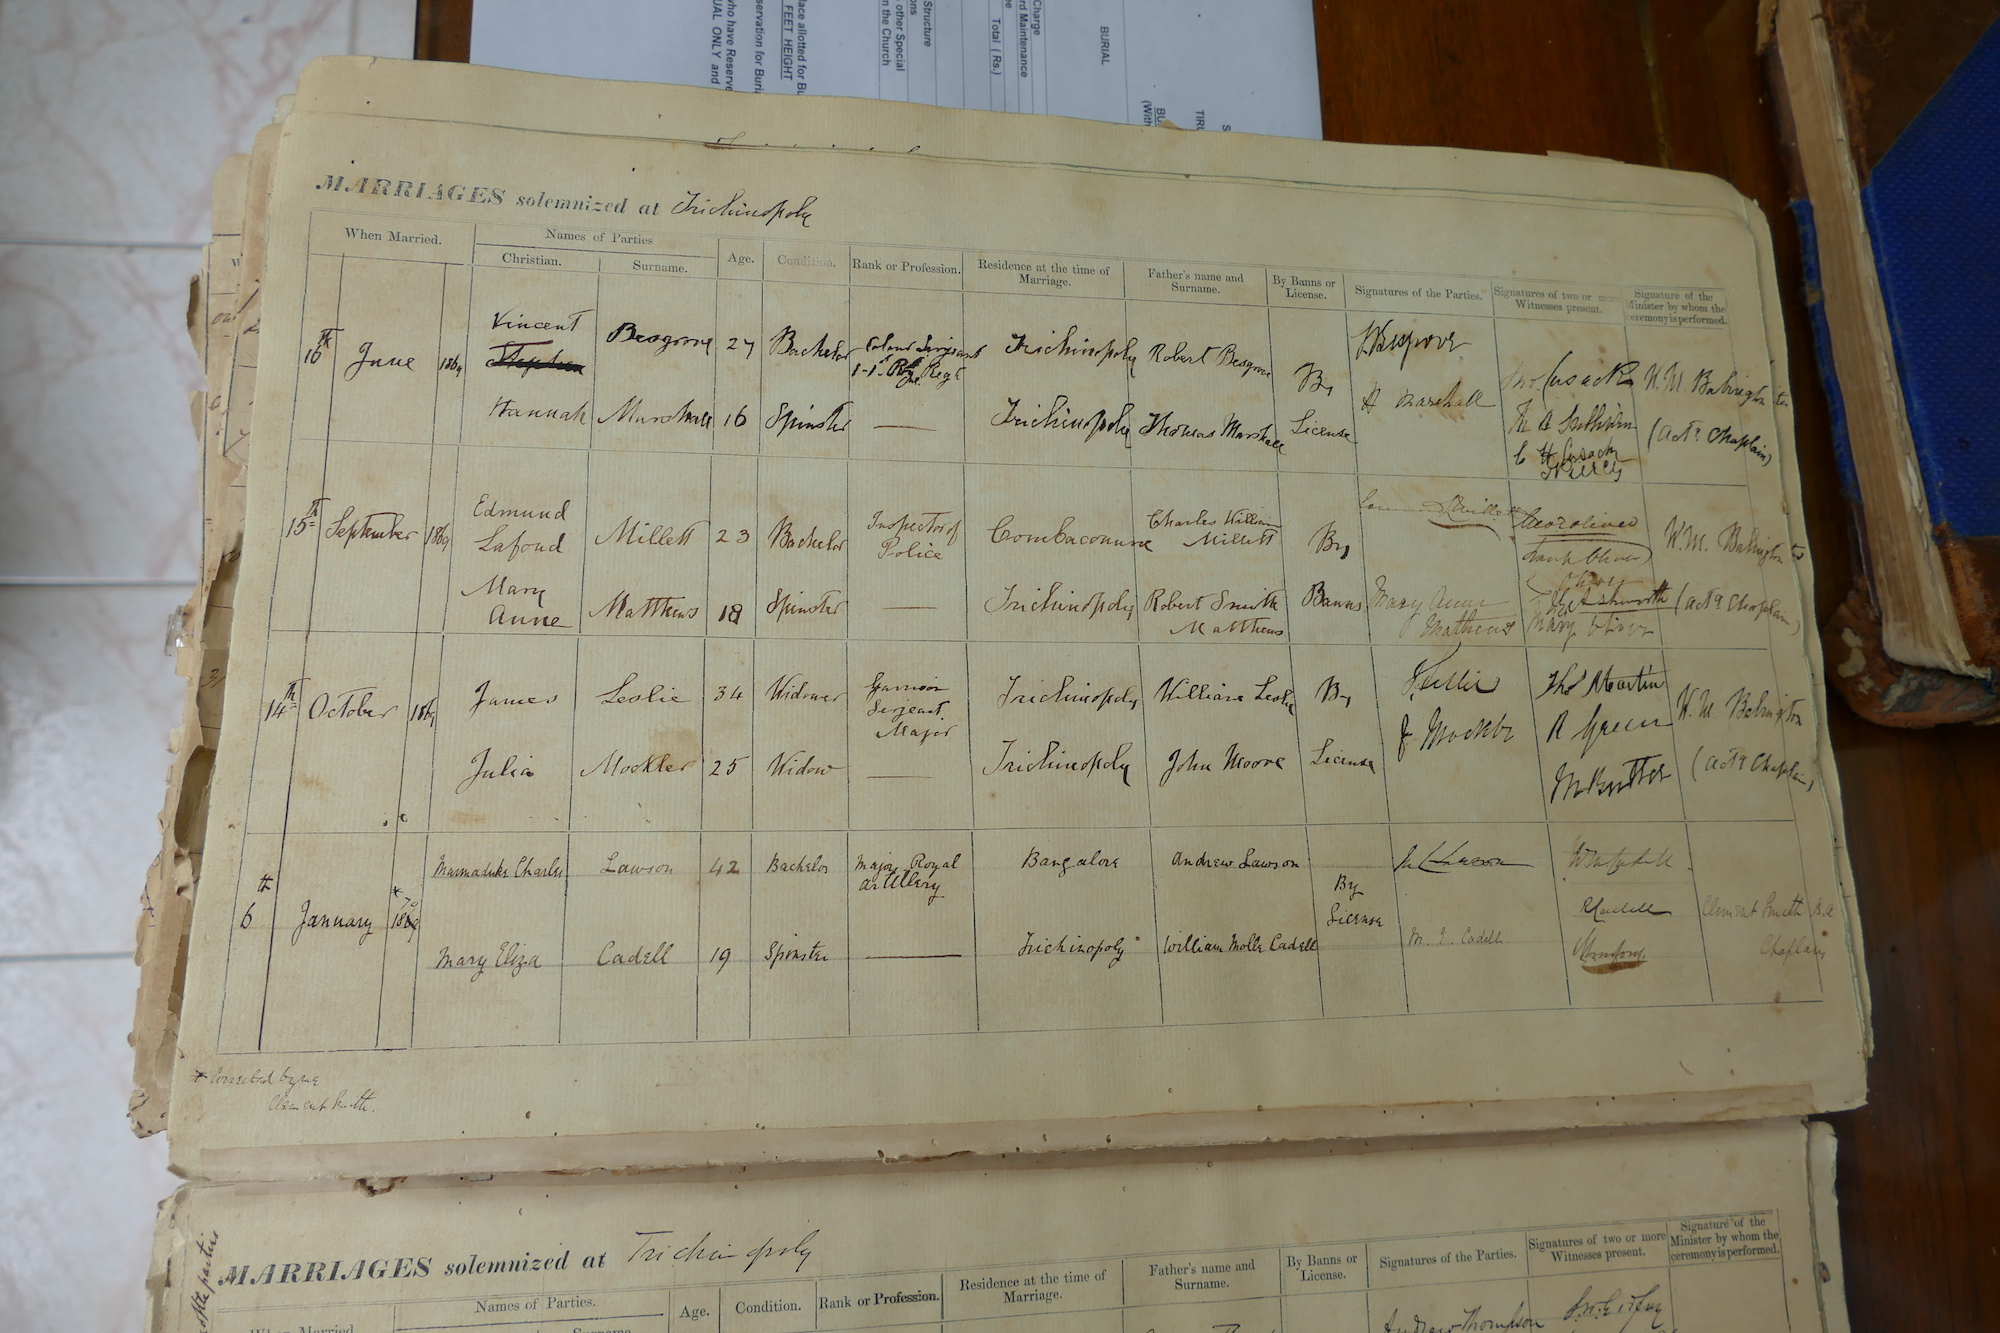 BURIAL
Charge
rd Maintenance
Total (Rs.)
Structure
other Special
n the Church
lace allotted for Bu
FEET HEIGHT
servation for Buri
who have Reserve
UAL ONLY and
MARRIAGES solemnized at Trichinopoly
When Married.
Names of Parties
Christian.
Surname.
Age.
Condition.
Rank or Profession.
Residence at the time of
Marriage.
Father's name and
Surname.
By Banns or
License.
Signatures of the Parties.
Signatures of two or more
Witnesses present.
Signature of the
Minister by whom the
ceremony is performed.
16th June 1869
Vincent
Stephen
Besgrove 27 Bachelor
Colour Sergeant
1-1st Regt
Trichinopoly Robert Besgrove
By
License
Hannah Marshall 16 Spinster — Trichinopoly Thomas Marshall
H Marshall
Jno. Cusack
W. M. Babington
(Actg Chaplain)
15th September 1869
Edmund
Lafond
Millett 23 Bachelor
Inspector of
Police
Combaconum
Charles William
Millett
By
Banns
Mary
Anne
Matthews 18 Spinster — Trichinopoly
Robert Smith
Matthews
Mary Anne
Mathews
Ashworth
Mary Oliver
W. M. Babington
(Actg Chaplain)
14th October 1869
James Leslie 34 Widower
Garrison
Sergeant
Major
Trichinopoly William Leslie
By
License
J Leslie
Julia Mockler 25 Widow — Trichinopoly John Moore
J Mockler
Thos Martin
R Green
W. M. Babington
(Actg Chaplain)
6th January 1869
* 70
Marmaduke Charles Lawson 42 Bachelor
Major Royal
Artillery
Bangalore Andrew Lawson
By
License
Mary Eliza Cadell 19 Spinster — Trichinopoly William Molle Cadell
M. E. Cadell
Clement Smith B.A
Chaplain
* Corrected by me
Clement Smith.
MARRIAGES solemnized at Trichinopoly
When Married
Names of Parties.
Surname
Age.
Condition.
Rank or Profession.
Residence at the time of
Marriage.
Father's name and
Surname.
By Banns or
License.
Signatures of the Parties.
Signatures of two or more
Witnesses present.
Signature of the
Minister by whom the
ceremony is performed.
Andrew Thompson